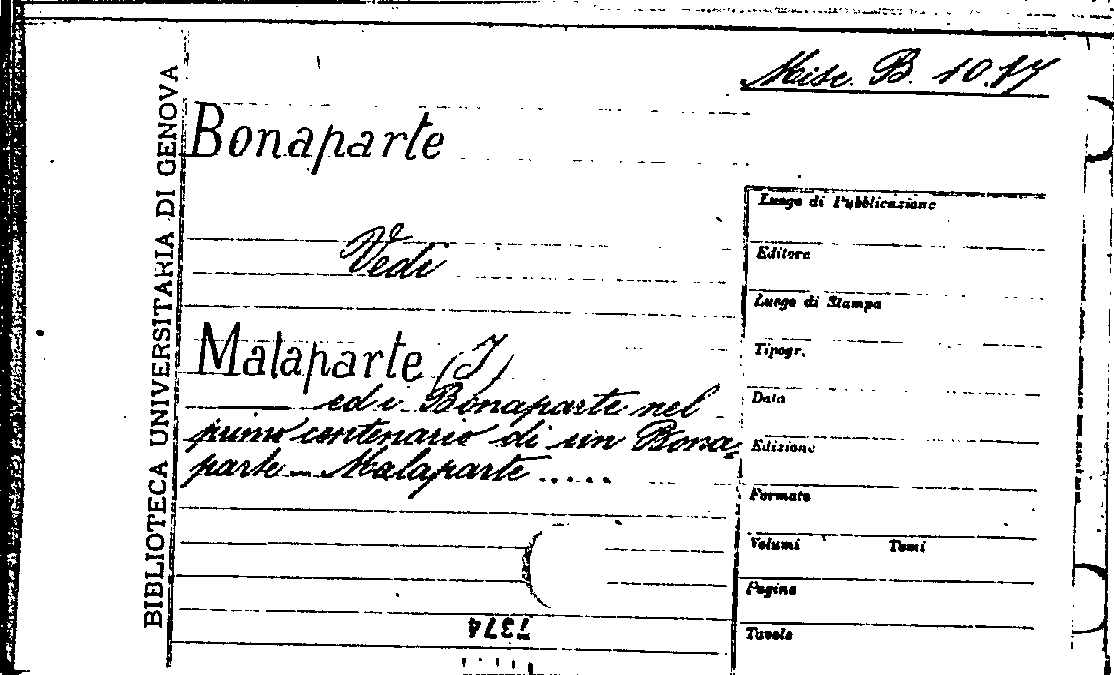 Misc. B. 10.17
BIBLIOTECA UNIVERSITARIA DI GENOVA
Bonaparte
Vedi
Malaparte (I)
ed i Bonaparte nel
primo centenario di un Bona=
parte - Malaparte .....
7374
Luogo di Pubblicazione
Editore
Luogo di Stampa
Tipogr.
Data
Edizione
Formato
Volumi Tomi
Pagine
Tavole